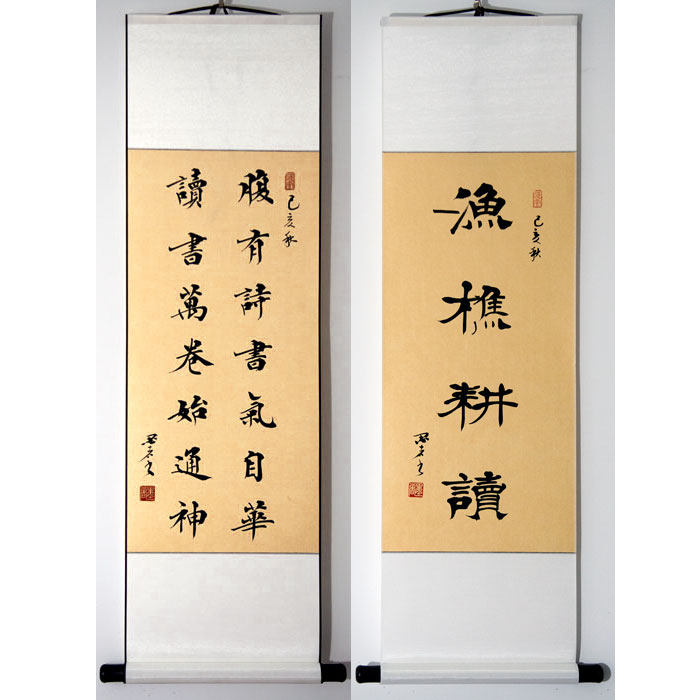 己亥秋
腹有詩書氣自華
讀書萬卷始通神
己亥秋
漁樵耕讀